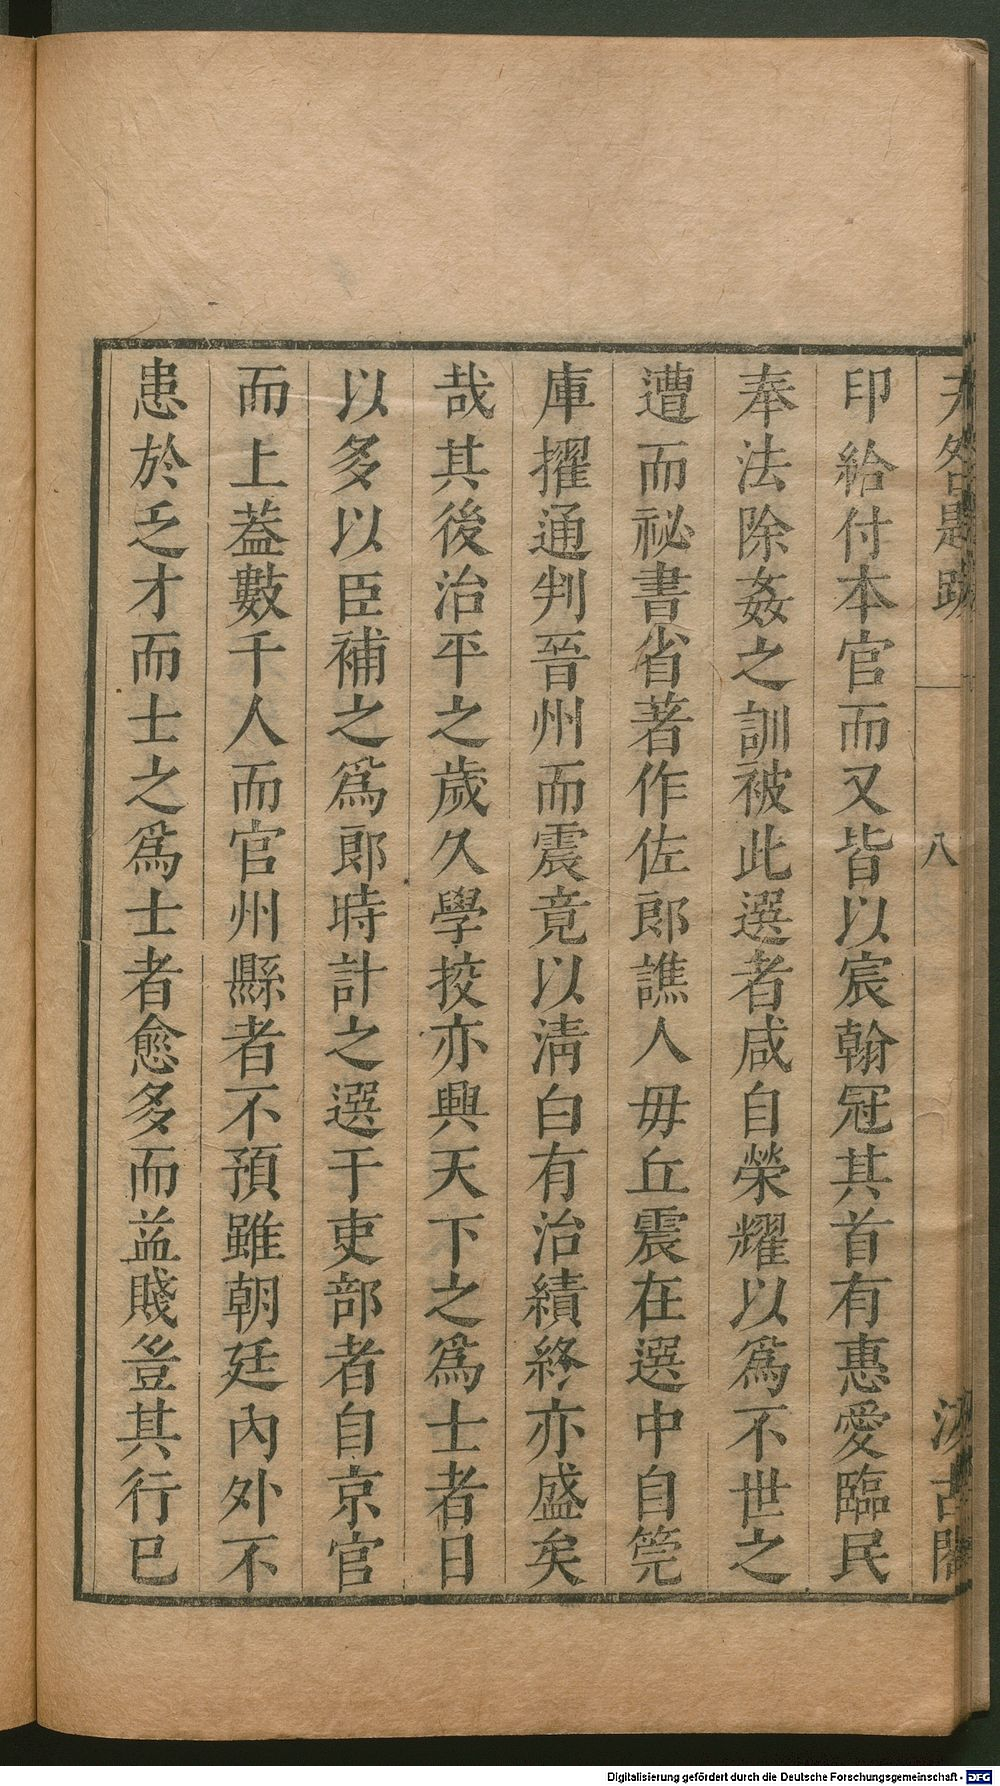 无咎題跋 八 汲古閣
印給付本官而又皆以宸翰冠其首有惠愛臨民
奉法除姦之訓被此選者咸自榮耀以爲不世之
遭而祕書省著作佐郎譙人毋丘震在選中自筦
庫擢通判晉州而震竟以淸白有治績終亦盛矣
哉其後治平之歲久學挍亦興天下之爲士者日
以多以臣補之爲郎時計之選于吏部者自京官
而上葢數千人而官州縣者不預雖朝廷內外不
患於乏才而士之爲士者愈多而益賤豈其行已
Digitalisierung gefördert durch die Deutsche Forschungsgemeinschaft - DFG